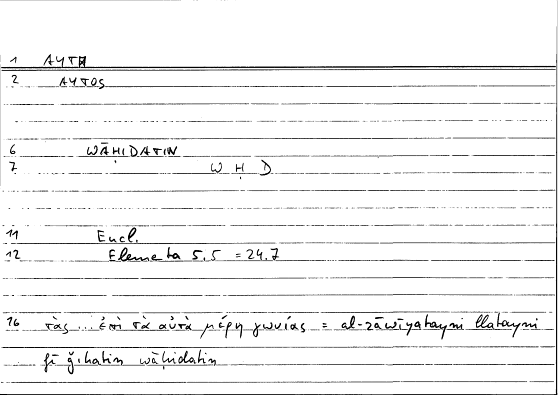 1 AYTH
2 AYTOS
6 WĀḤIDATIN
7 W Ḥ D
11 Eucl.
12 Elementa 5.5 = 24.7
16 τὰς ... ἐπὶ τὰ αὐτὰ μέρη γωνίας = al-zāwīyatayni llatayni
fī ǧihatin wāḥidatin